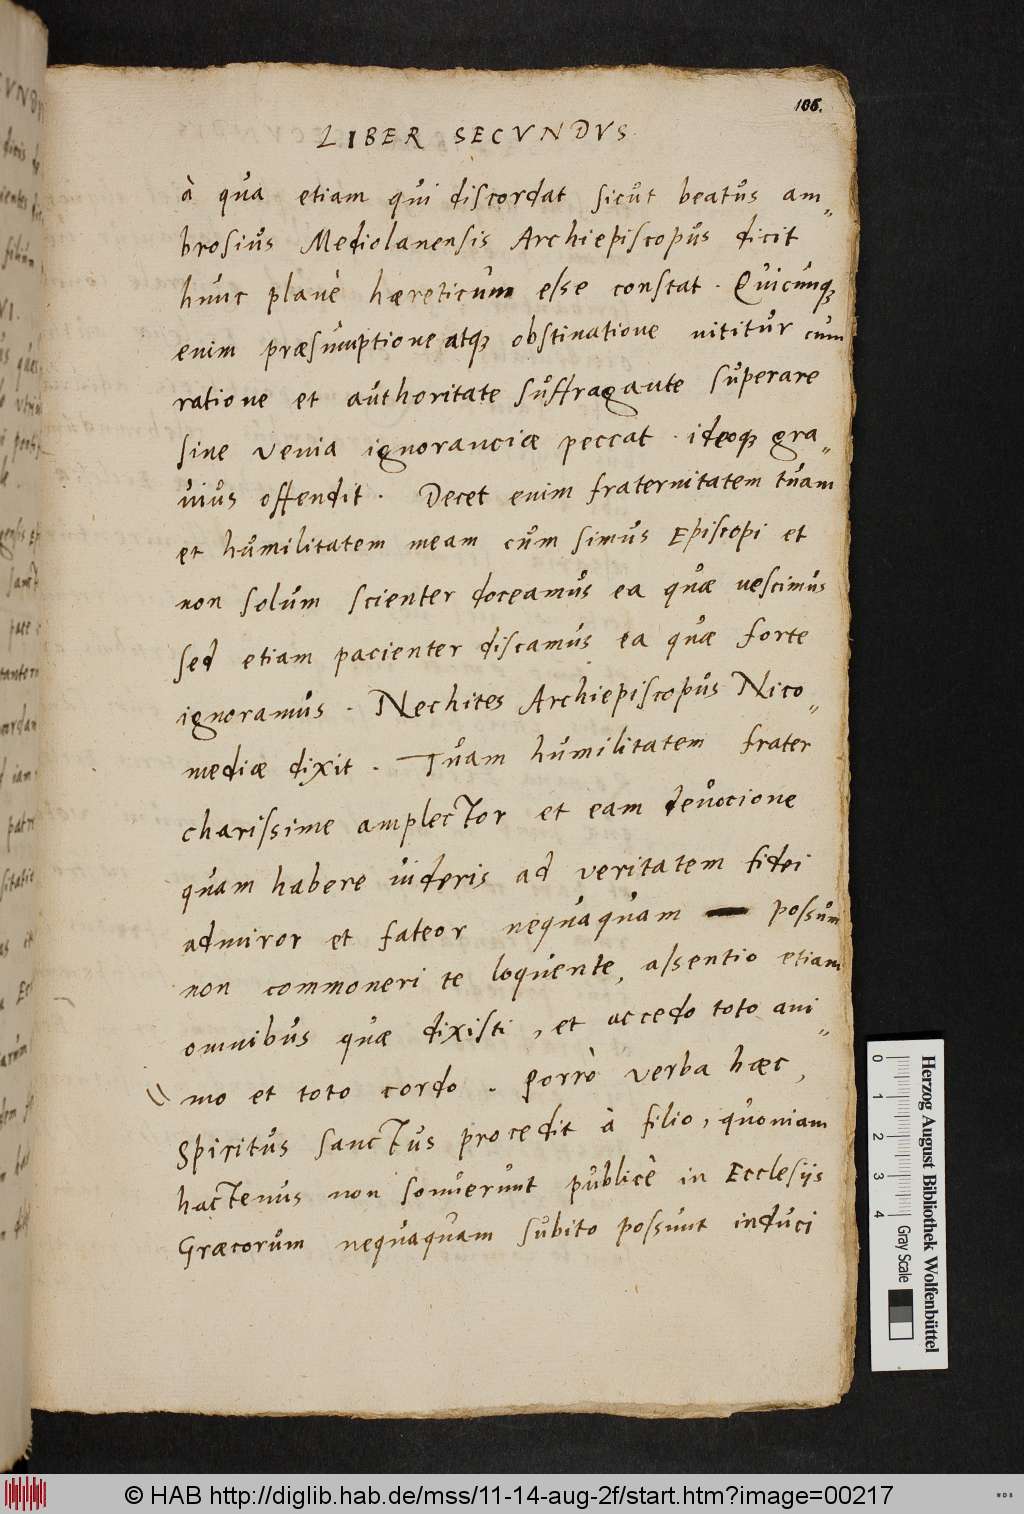 106.
LIBER SECVNDVS
à qua etiam qui discordat sicut beatus am„
brosius Mediolanensis Archiepiscopus dicit
hunc planè hæreticum esse constat. Quicunq;
enim præsumptione atq; obstinatione nititur cum
ratione et authoritate suffragante superare
sine venia ignoranciæ peccat. ideoq; gra„
uius offendit. Decet enim fraternitatem tuam
et humilitatem meam cum simus Episcopi et
non solum scienter doceamus ea quæ nescimus
sed etiam pacienter discamus ea quæ forte
ignoramus. Nechites Archiepiscopus Nico„
mediæ dixit. Tuam humilitatem frater
charissime amplector et eam deuocione
quam habere uideris ad veritatem fidei
admiror et fateor nequaquam possum
non commoneri te loquente, assentio etiam
omnibus quæ dixisti, et accedo toto ani„
mo et toto cordo. Porrò verba hæc,
Spiritus sanctus procedit à filio, quoniam
hactenus non sonuerunt publicè in Ecclesijs
Græcorum nequaquam subito possunt induci
Herzog August Bibliothek Wolfenbüttel
0 1 2 3 4 Gray Scale
© HAB http://diglib.hab.de/mss/11-14-aug-2f/start.htm?image=00217